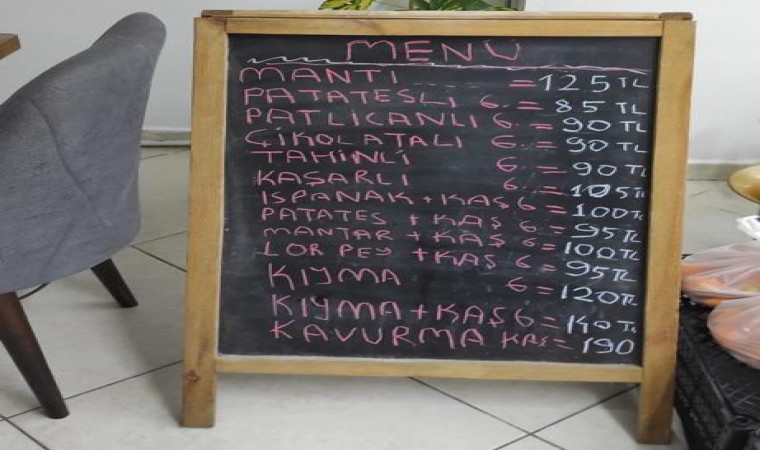 MENÜ
MANTI = 125 TL
PATATESLİ G = 85 TL
PATLICANLI G = 90 TL
ÇİKOLATALI G = 90 TL
TAHİNLİ G = 90 TL
KAŞARLI G = 105 TL
ISPANAK + KAŞ G = 100 TL
PATATES + KAŞ G = 95 TL
MANTAR + KAŞ G = 100 TL
LOR PEY + KAŞ G = 95 TL
KIYMA G = 120 TL
KIYMA + KAŞ G = 140 TL
KAVURMA KAŞ = 190